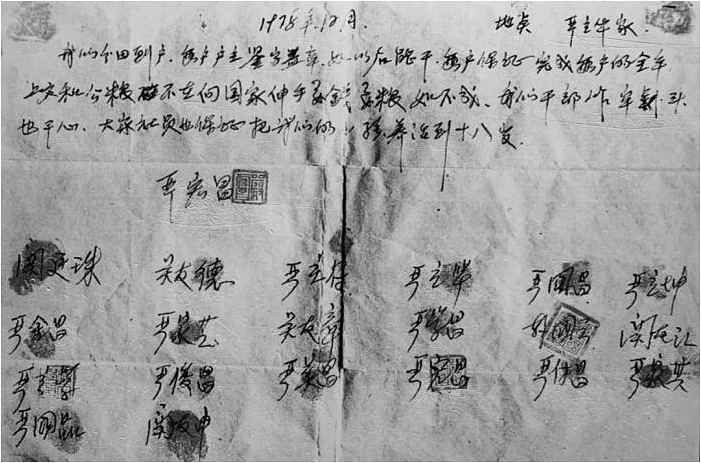 1978年12月. 地点 严立华家.
我们分田到户, 每户户主签字盖章, 如以后能干, 每户保证完成每户的全年
上交和公粮. 不在向国家伸手要钱要粮, 如不成, 我们干部作牢剎头
也干心, 大家社员也保证把我们的小孩养活到十八岁.
严宏昌
关廷珠 关友德 严立符 严立华 严国昌 严立坤
严金昌 严家芝 关友章 严学昌 韩国云 关友江
严立学 严俊昌 严美昌 严宏昌 严付昌 严家其
严国品 关友申